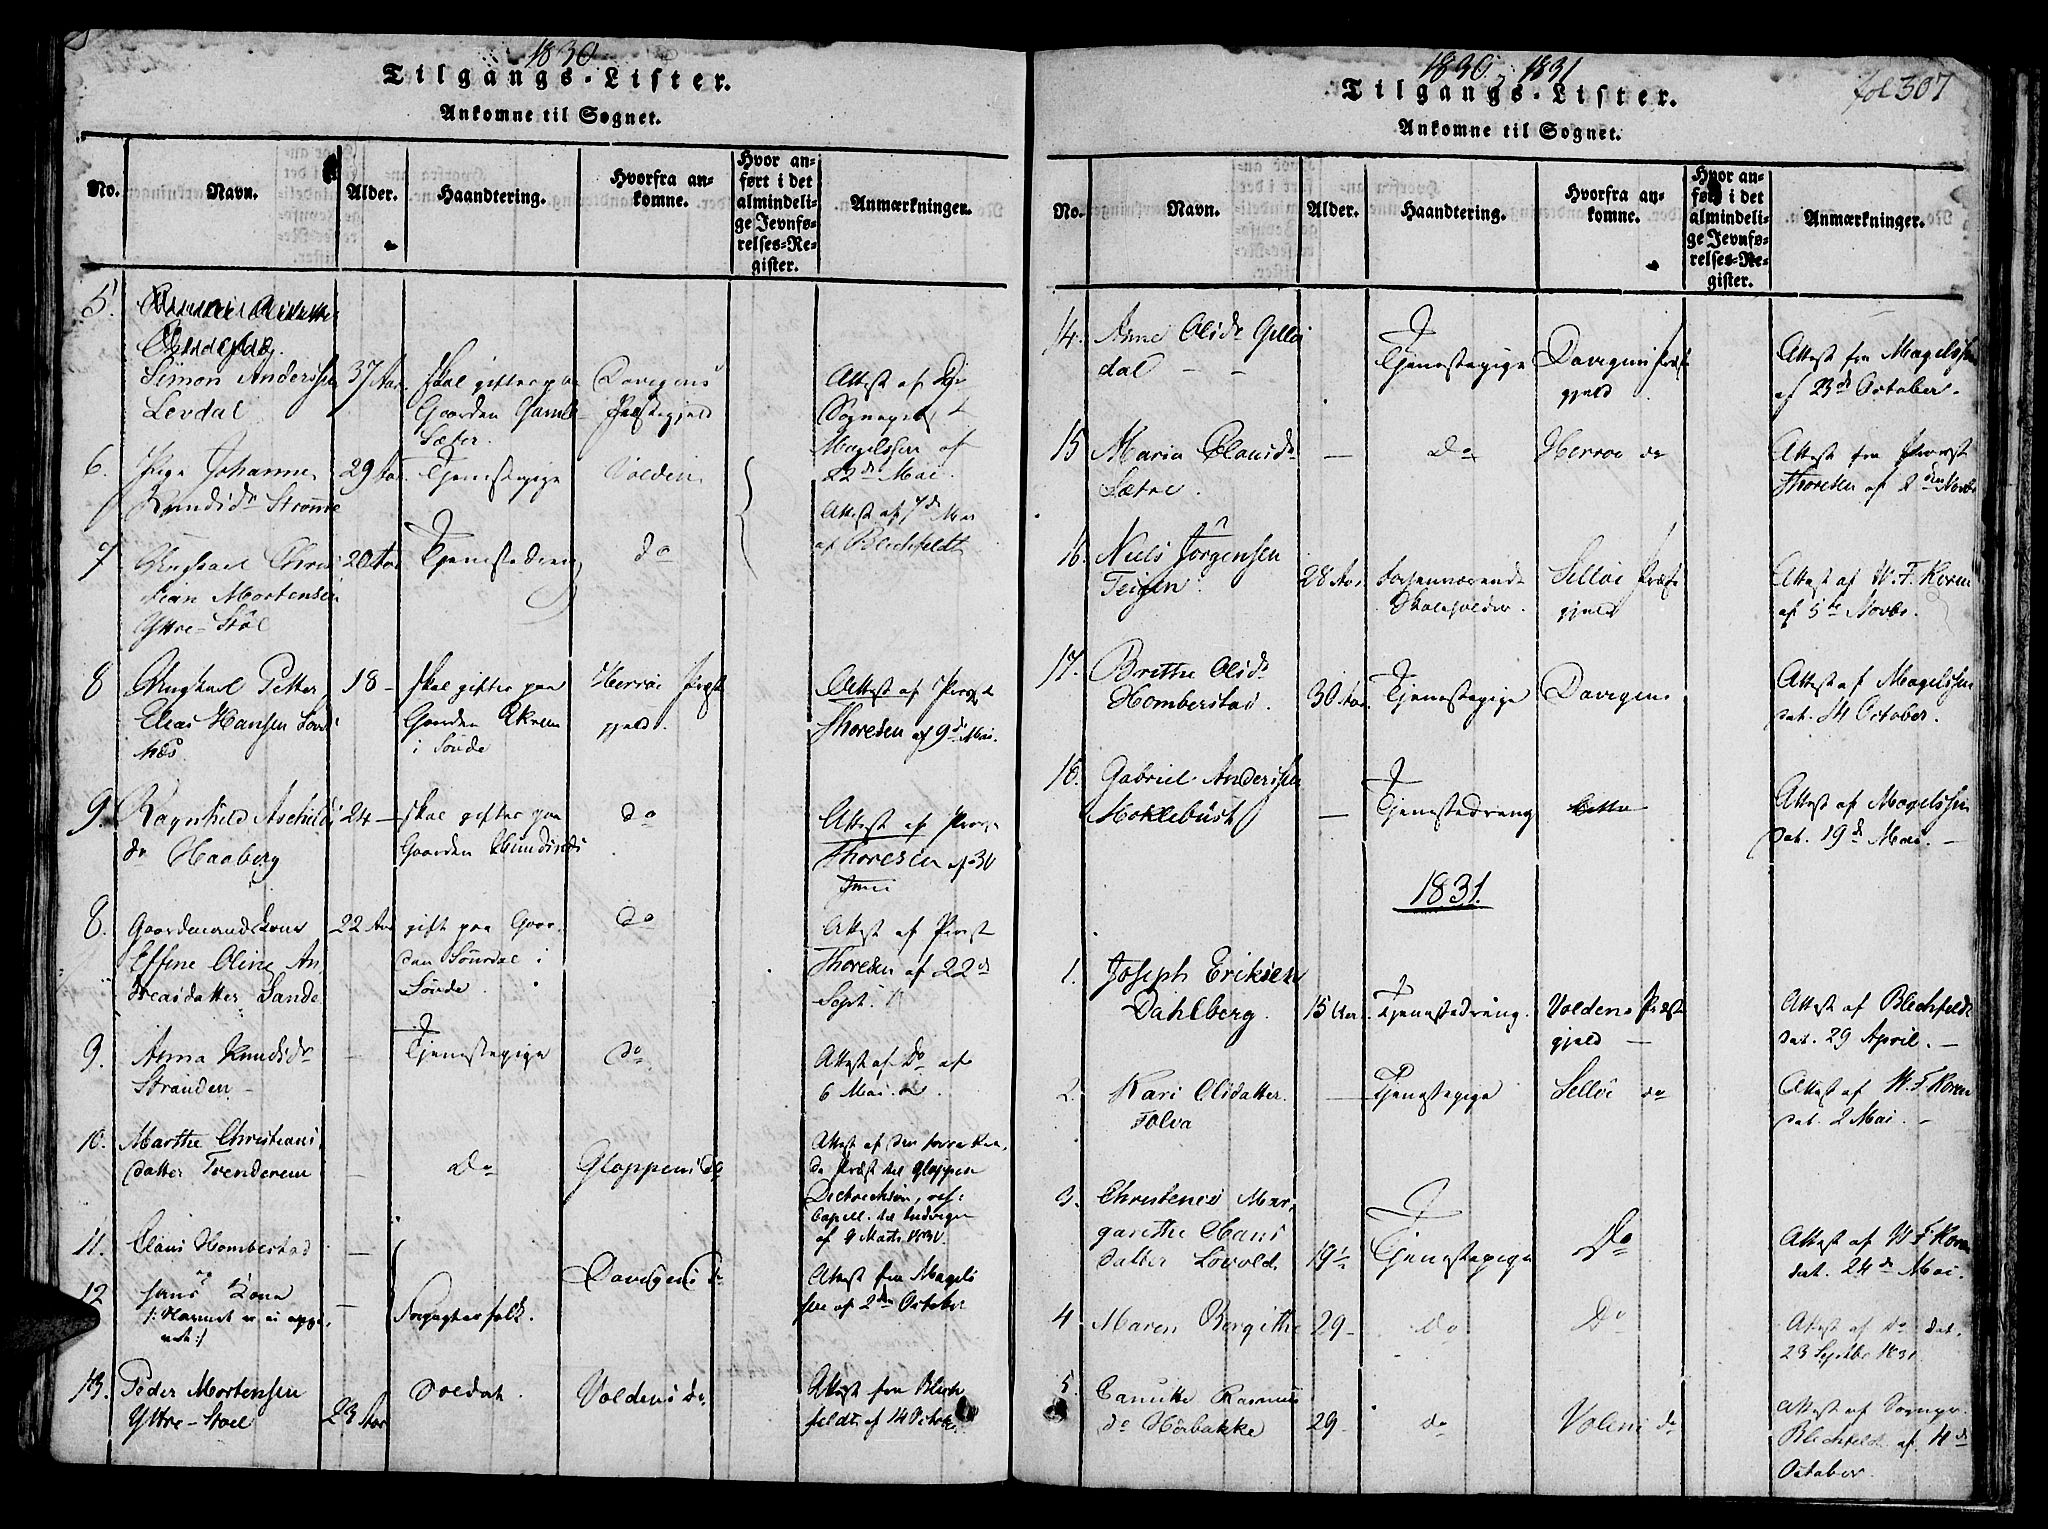 1830
Tilgangs-Lister.
Ankomne til Sognet.
No.
Navn.
Alder.
Haandtering.
Hvorfra an-
komne.
Hvor an-
ført i det
almindeli-
ge Jevnfø-
relses-Re-
gister.
Anmærkninger.
5.
Simon Anderssen
Levdal
37 Aar
skal giftes paa
Gaarden
Sæter.
Davigens
Præstegjeld
Attest af
Sognepr.
Magelssen af
22de Mai.
6.
Johanne
Knudsdr Strømme
29 Aar
Tjenestepige
Volden
Attest af 7de Mai
af Blechfeldt
7
Chri
stian Mortensen
Yttre-Støl
20 Aar
Tjenestedreng
do
8
Petter
Elias Hansen
næs
18 -
skal giftes paa
Gaarden
i Sønde
Herröe Præst
gjeld.
Attest af Provst
Thoresen af 9de Mai.
9.
Ragnhild Aschilds
dr Haaberg
24 -
skal giftes paa
Gaarden
do
Attest af Provst
Thoresen af 30
Juni
8.
Gaardmands Kone
Effine Oline An
dreasdatter Sande
22 Aar
gift paa Gaar
den Sørdal i
Sønde.
do
Attest af Provst
Thoresen af 22de
Sept.
9.
Anna Knudsdr
Stranden
-
Tjenestepige
do
Attest af Do af
6 Mai.
10.
Marthe Christians
datter Trenderem
-
do
Gloppens do
Attest af den
Præst til Gloppen
Capell. til Indvigen
af 9 Marts 1830
11.
Claus Hombestad
-
12
og
hans Kone
/: Navnet er ei opgi
vet :/
-
Forpagterfolk.
Davigens do
Attest fra Magels
sen af 2den October
13.
Peder Mortensen
Yttre-Stoel
23 Aar
Soldat.
Voldens do
Attest fra Blech
feldt af 14 Octobr
1830 1831
Tilgangs-Lister.
Ankomne til Sognet.
fol 307
No.
Navn.
Alder.
Haandtering.
Hvorfra an-
komne.
Hvor an-
ført i det
almindeli-
ge Jevnfø-
relses-Re-
gister.
Anmærkninger.
14.
Anne Olsdr
dal - -
Tjenestepige
Davigens Præst
gjeld.
Attest fra Magelssen
af 23de October.
15
Maria Clausdr
Sætre.
-
do
Herröe do
Attest fra Provst
Thoresen af 2den Novbr
16.
Niels Jørgensen
Teigen.
28 Aar
forhenværende
Skoleholder.
Selløe Præste
gjeld
Attest af W. F. Koren
af 5te Novbr.
17.
Brithe Olsdr
Homberstad.
30 Aar.
Tjenestepige
Davigens
Attest af Magelssen
dat. 14 October.
18.
Gabriel Anderssen
Moklebust
-
Tjenestedreng
Attest af Magelssen
dat. 19de Mai. -
1831.
1.
Joseph Eriksen
Dahlberg.
15 Aar.
Tjenestedreng.
Voldens Præst
gjeld -
Attest af Blechfeldt
dat. 29 April. -
2.
Kari Olsdatter
Tolva
-
Tjenestepige
Selløe do
Attest af W. F. Koren
dat. 2 Mai. -
3.
Christence Mar
garethe Hans
datter Lovold.
19½
Tjenestepige
Do
Attest af W F Koren
dat. 24de Mai.
4
Maren Bergithe
29 -
do
Do
Attest af Do dat.
23 Septbr 1831
5.
Rasmus
dr Hörbakke
29 -
do
Voldens do
Attest af Sognepr.
Blechfeldt af 4de
October.